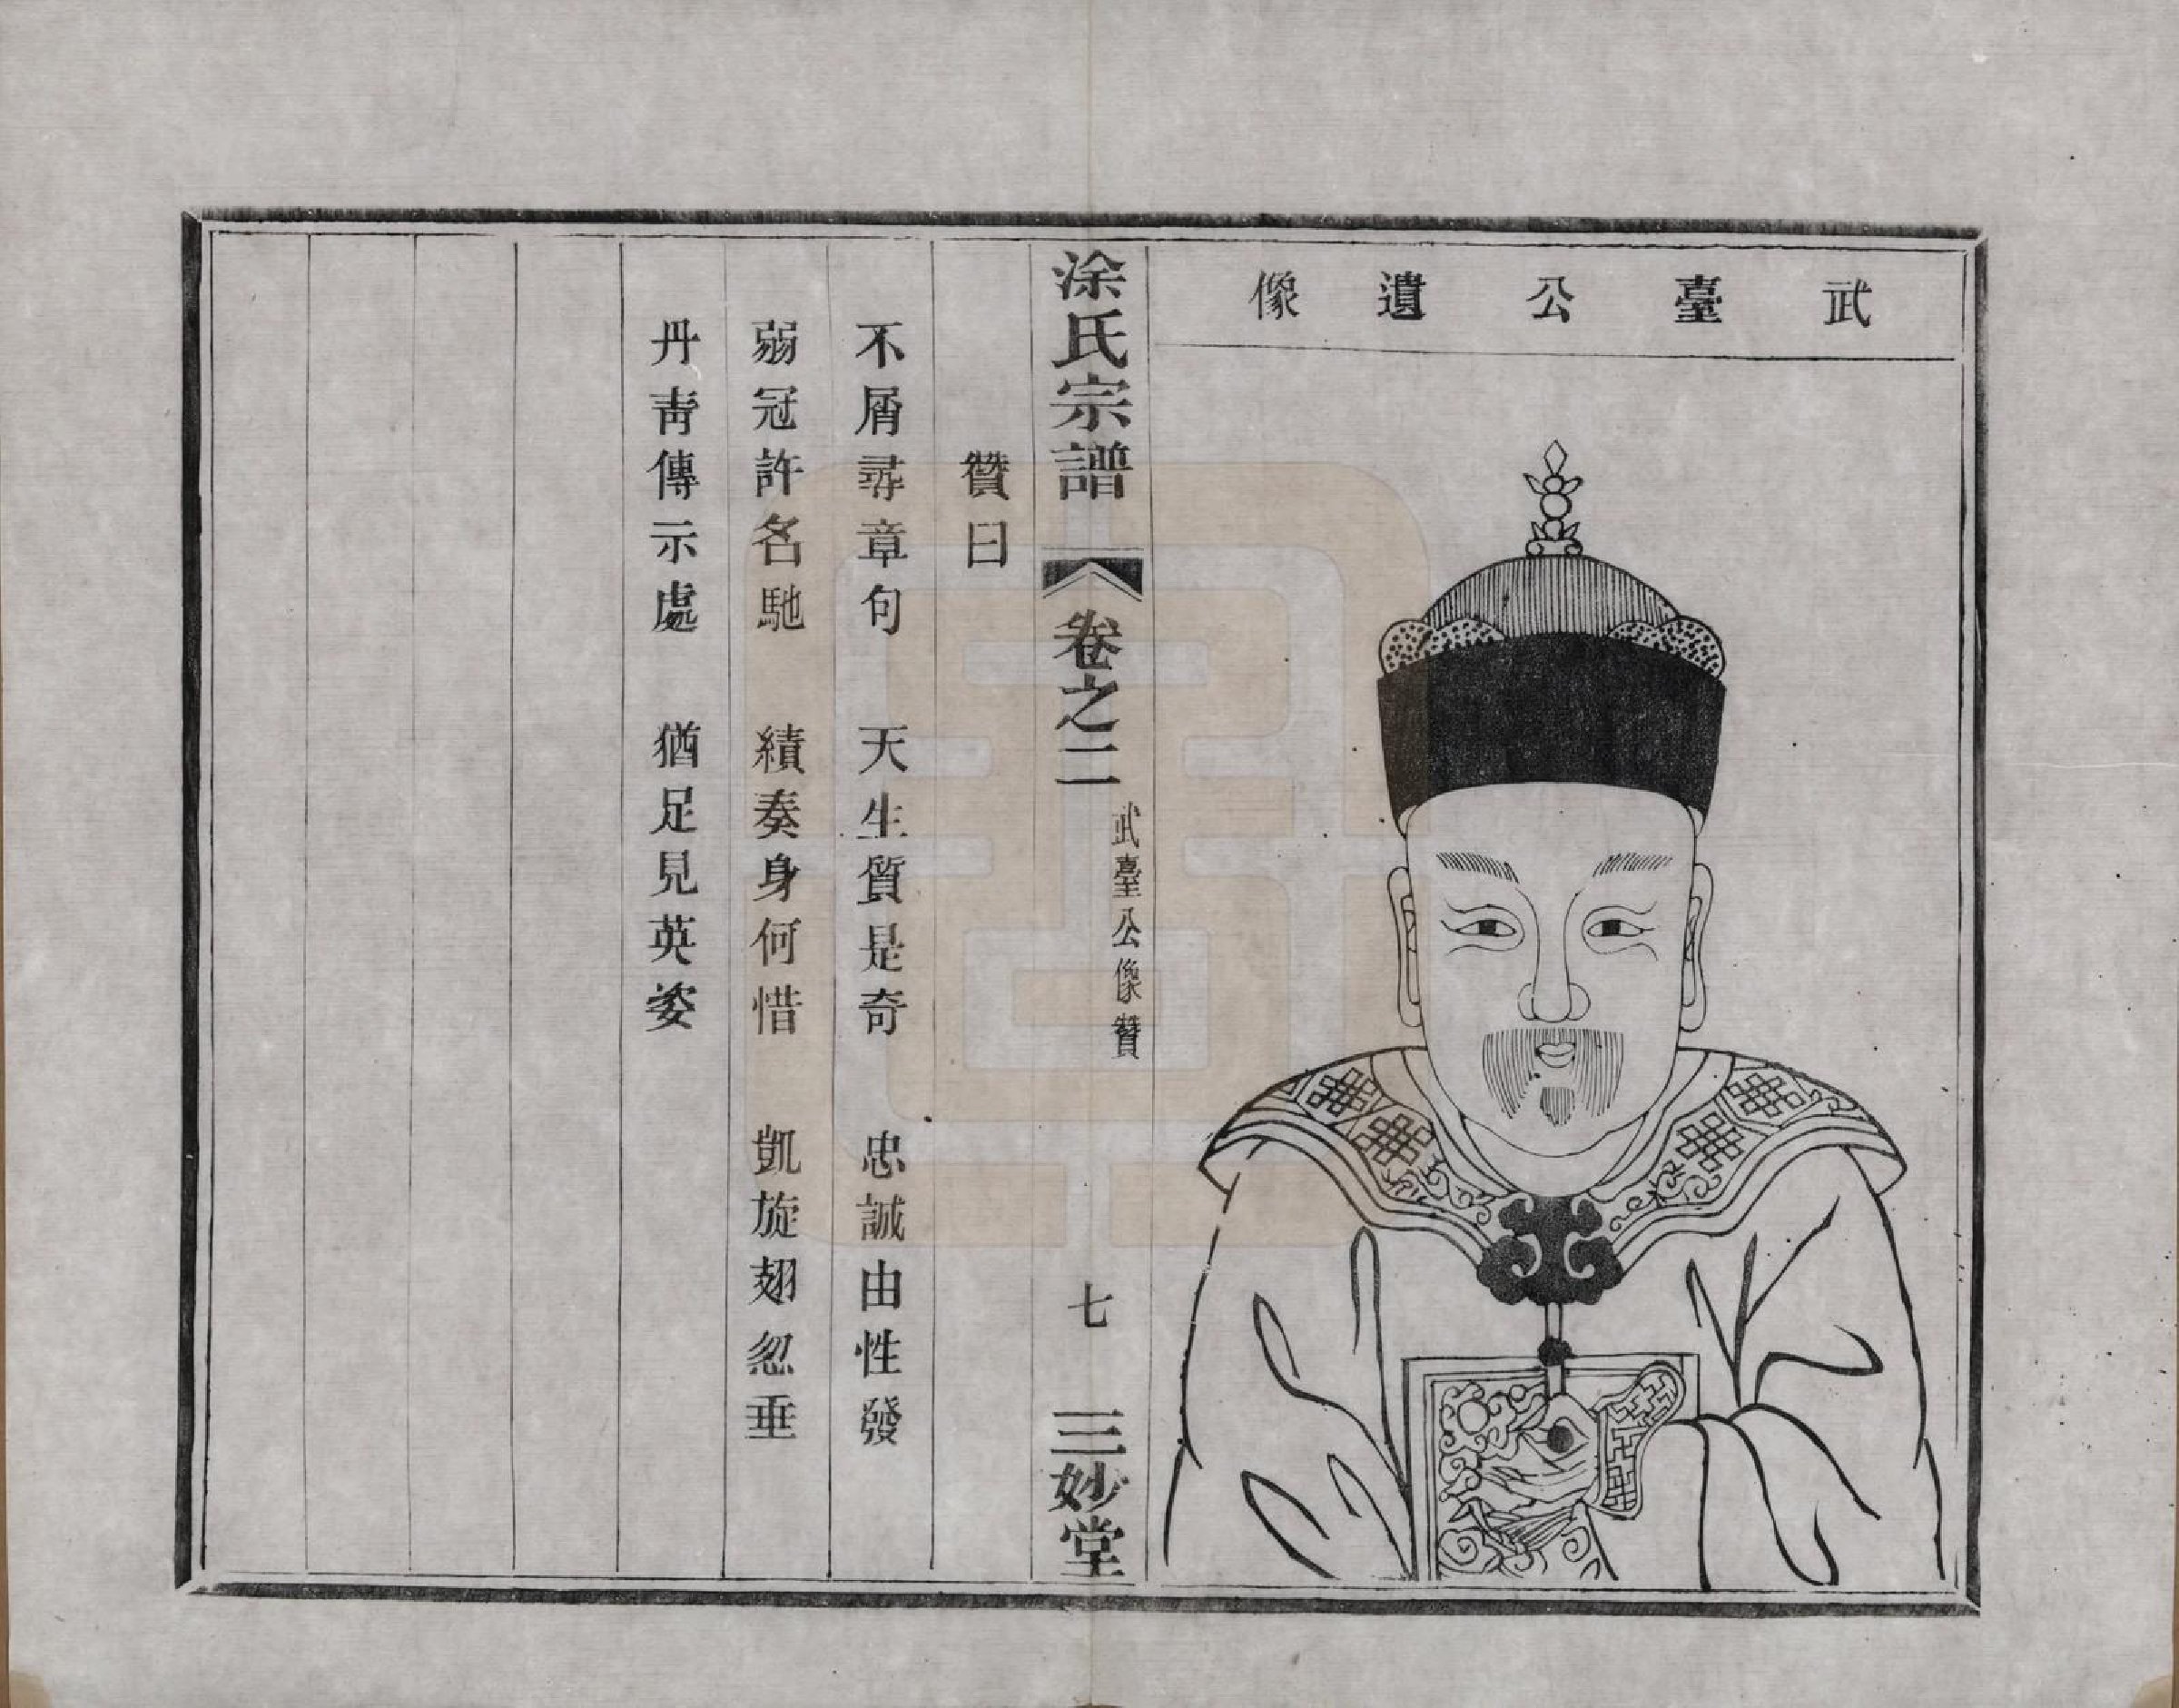 武臺公遺像
涂氏宗譜 卷之二 武臺公像贊 七 三妙堂
贊曰
不屑尋章句 天生質是奇 忠誠由性發
弱冠許名馳 績奏身何惜 凱旋翅忽垂
丹青傳示處 猶足見英姿